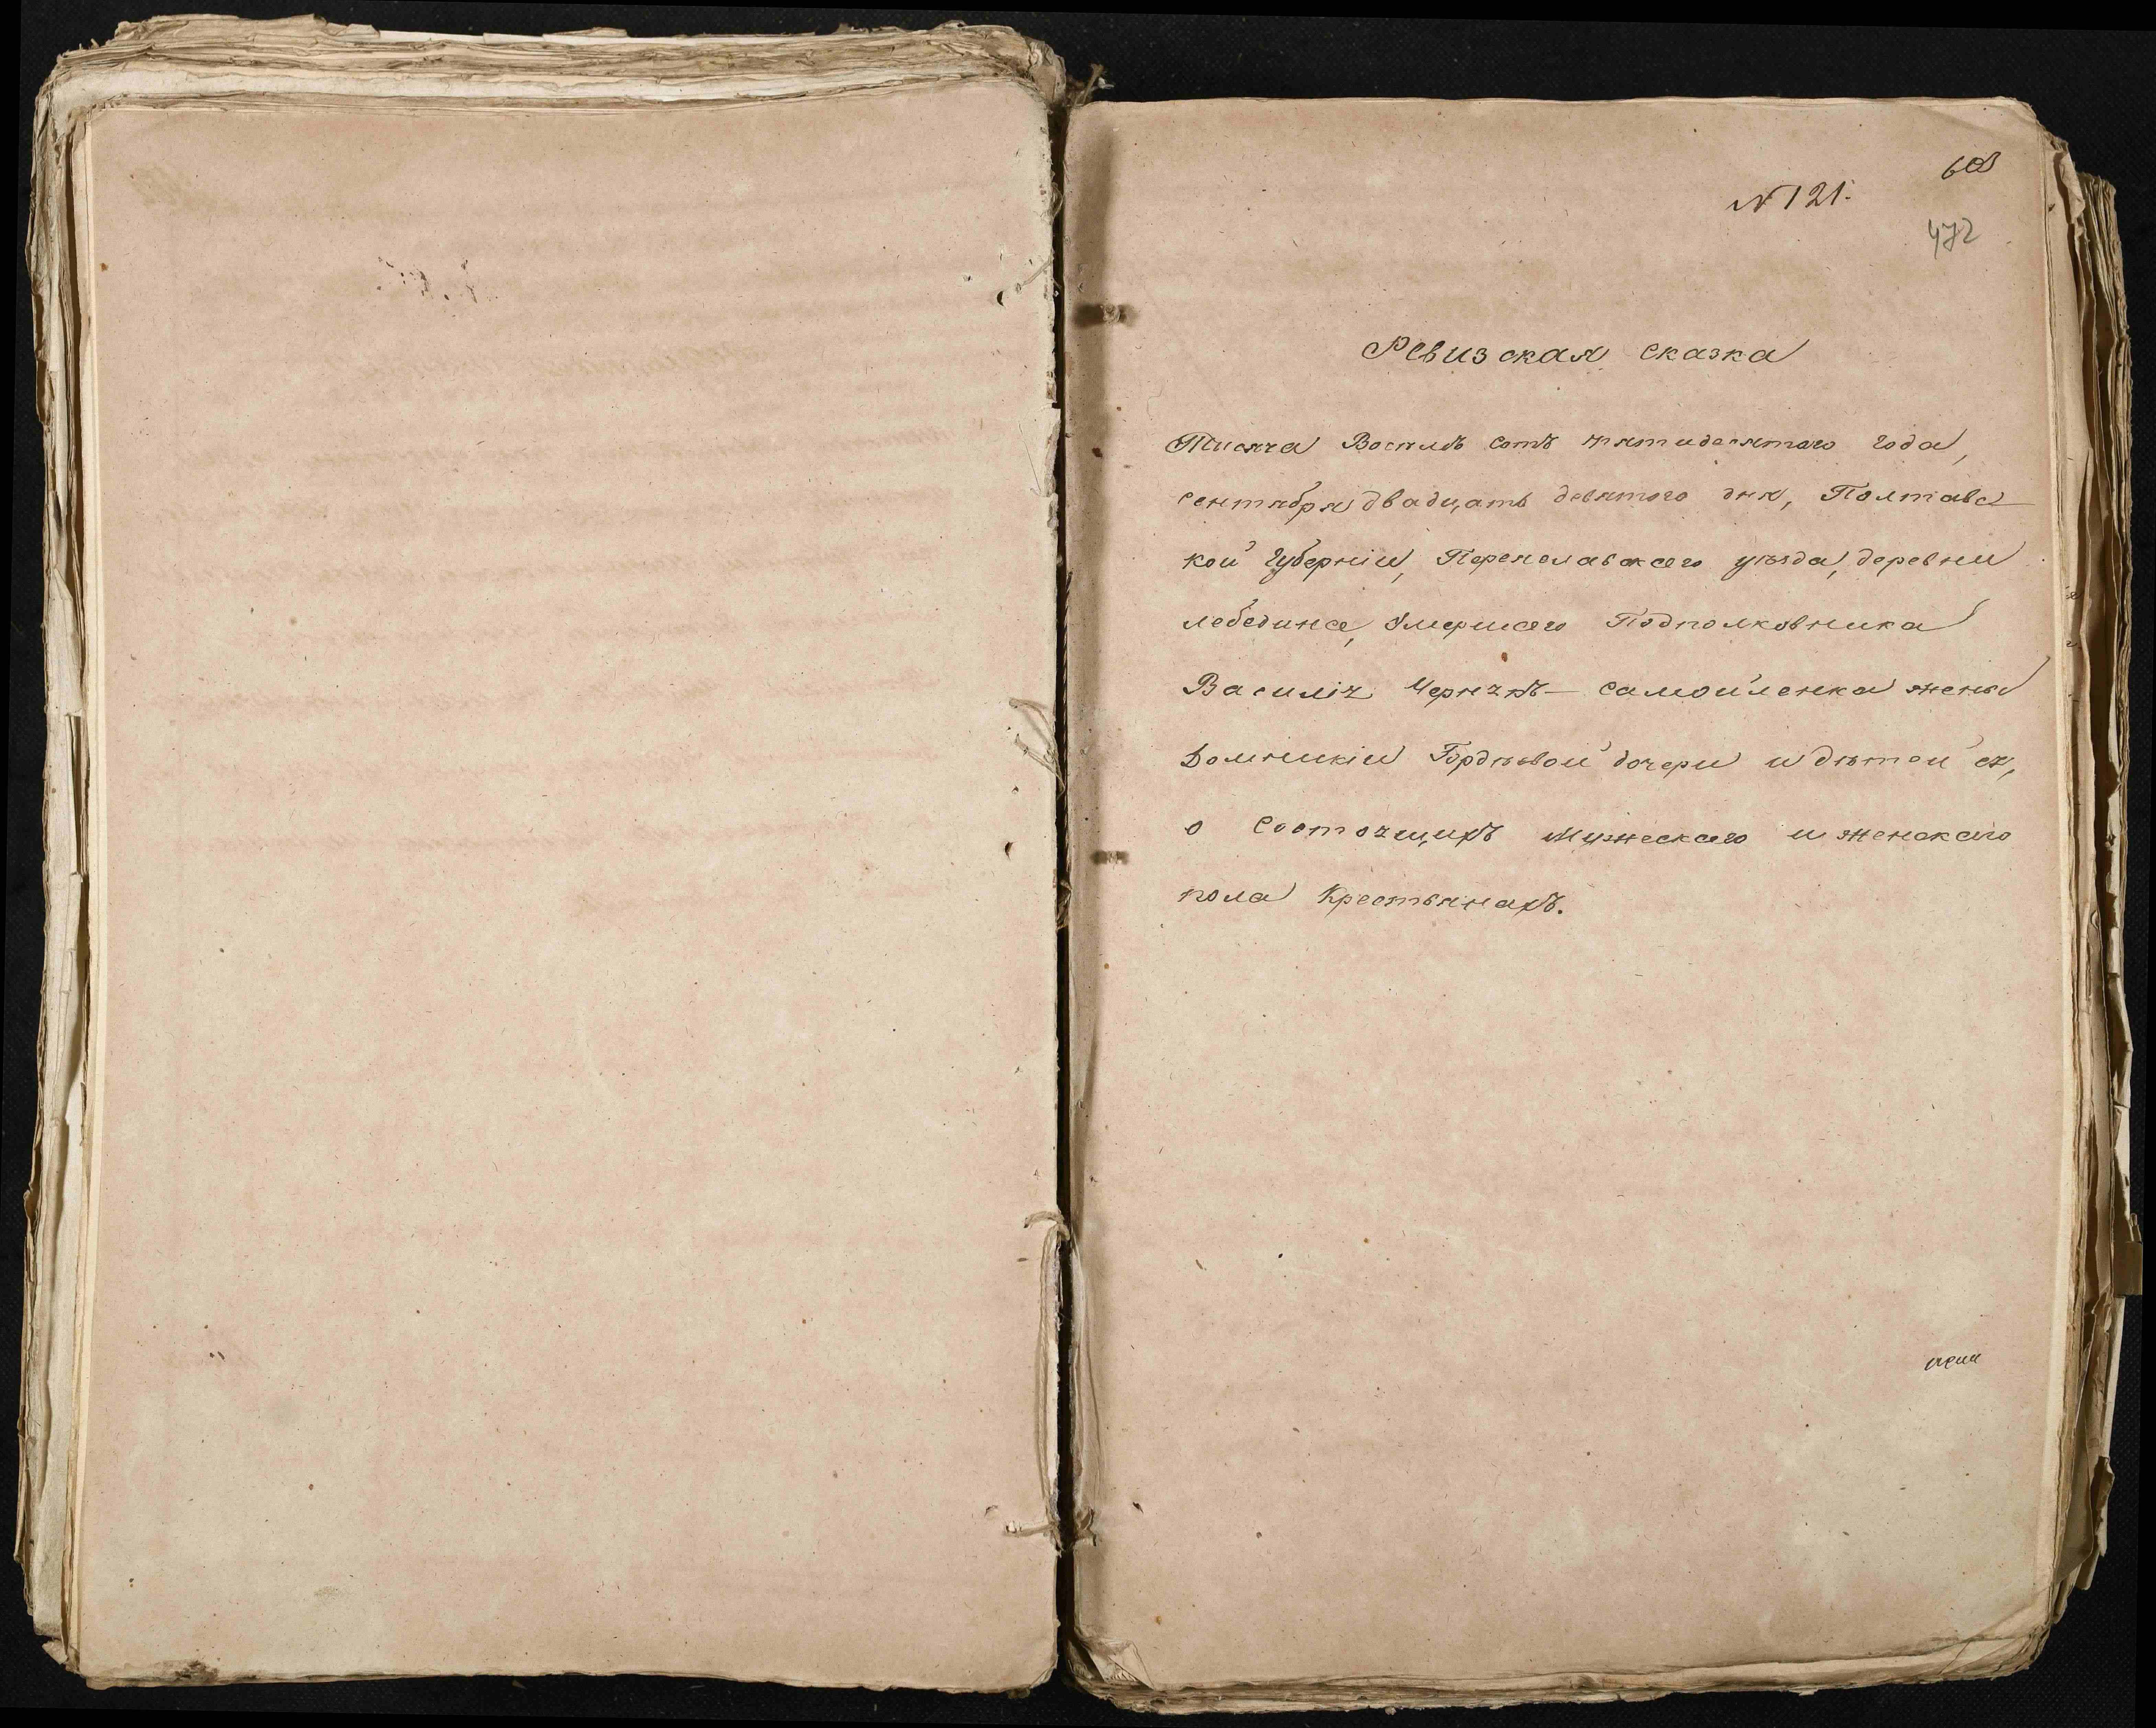 608
N 121.
472
Ревизская сказка
Тысяча Восемь сотъ пятидесятого года,
сентября двадцать девятого дня, Полтавс
кой Губерніи, Переяславского уѣзда, деревни
лебедина, Умершего Подполковника
Василія Черняхъ- самойленка жены
Домникіи Гордѣевой дочери и дѣтей ея,
о состоящихъ Мужеского и женского
пола Крестьянахъ.